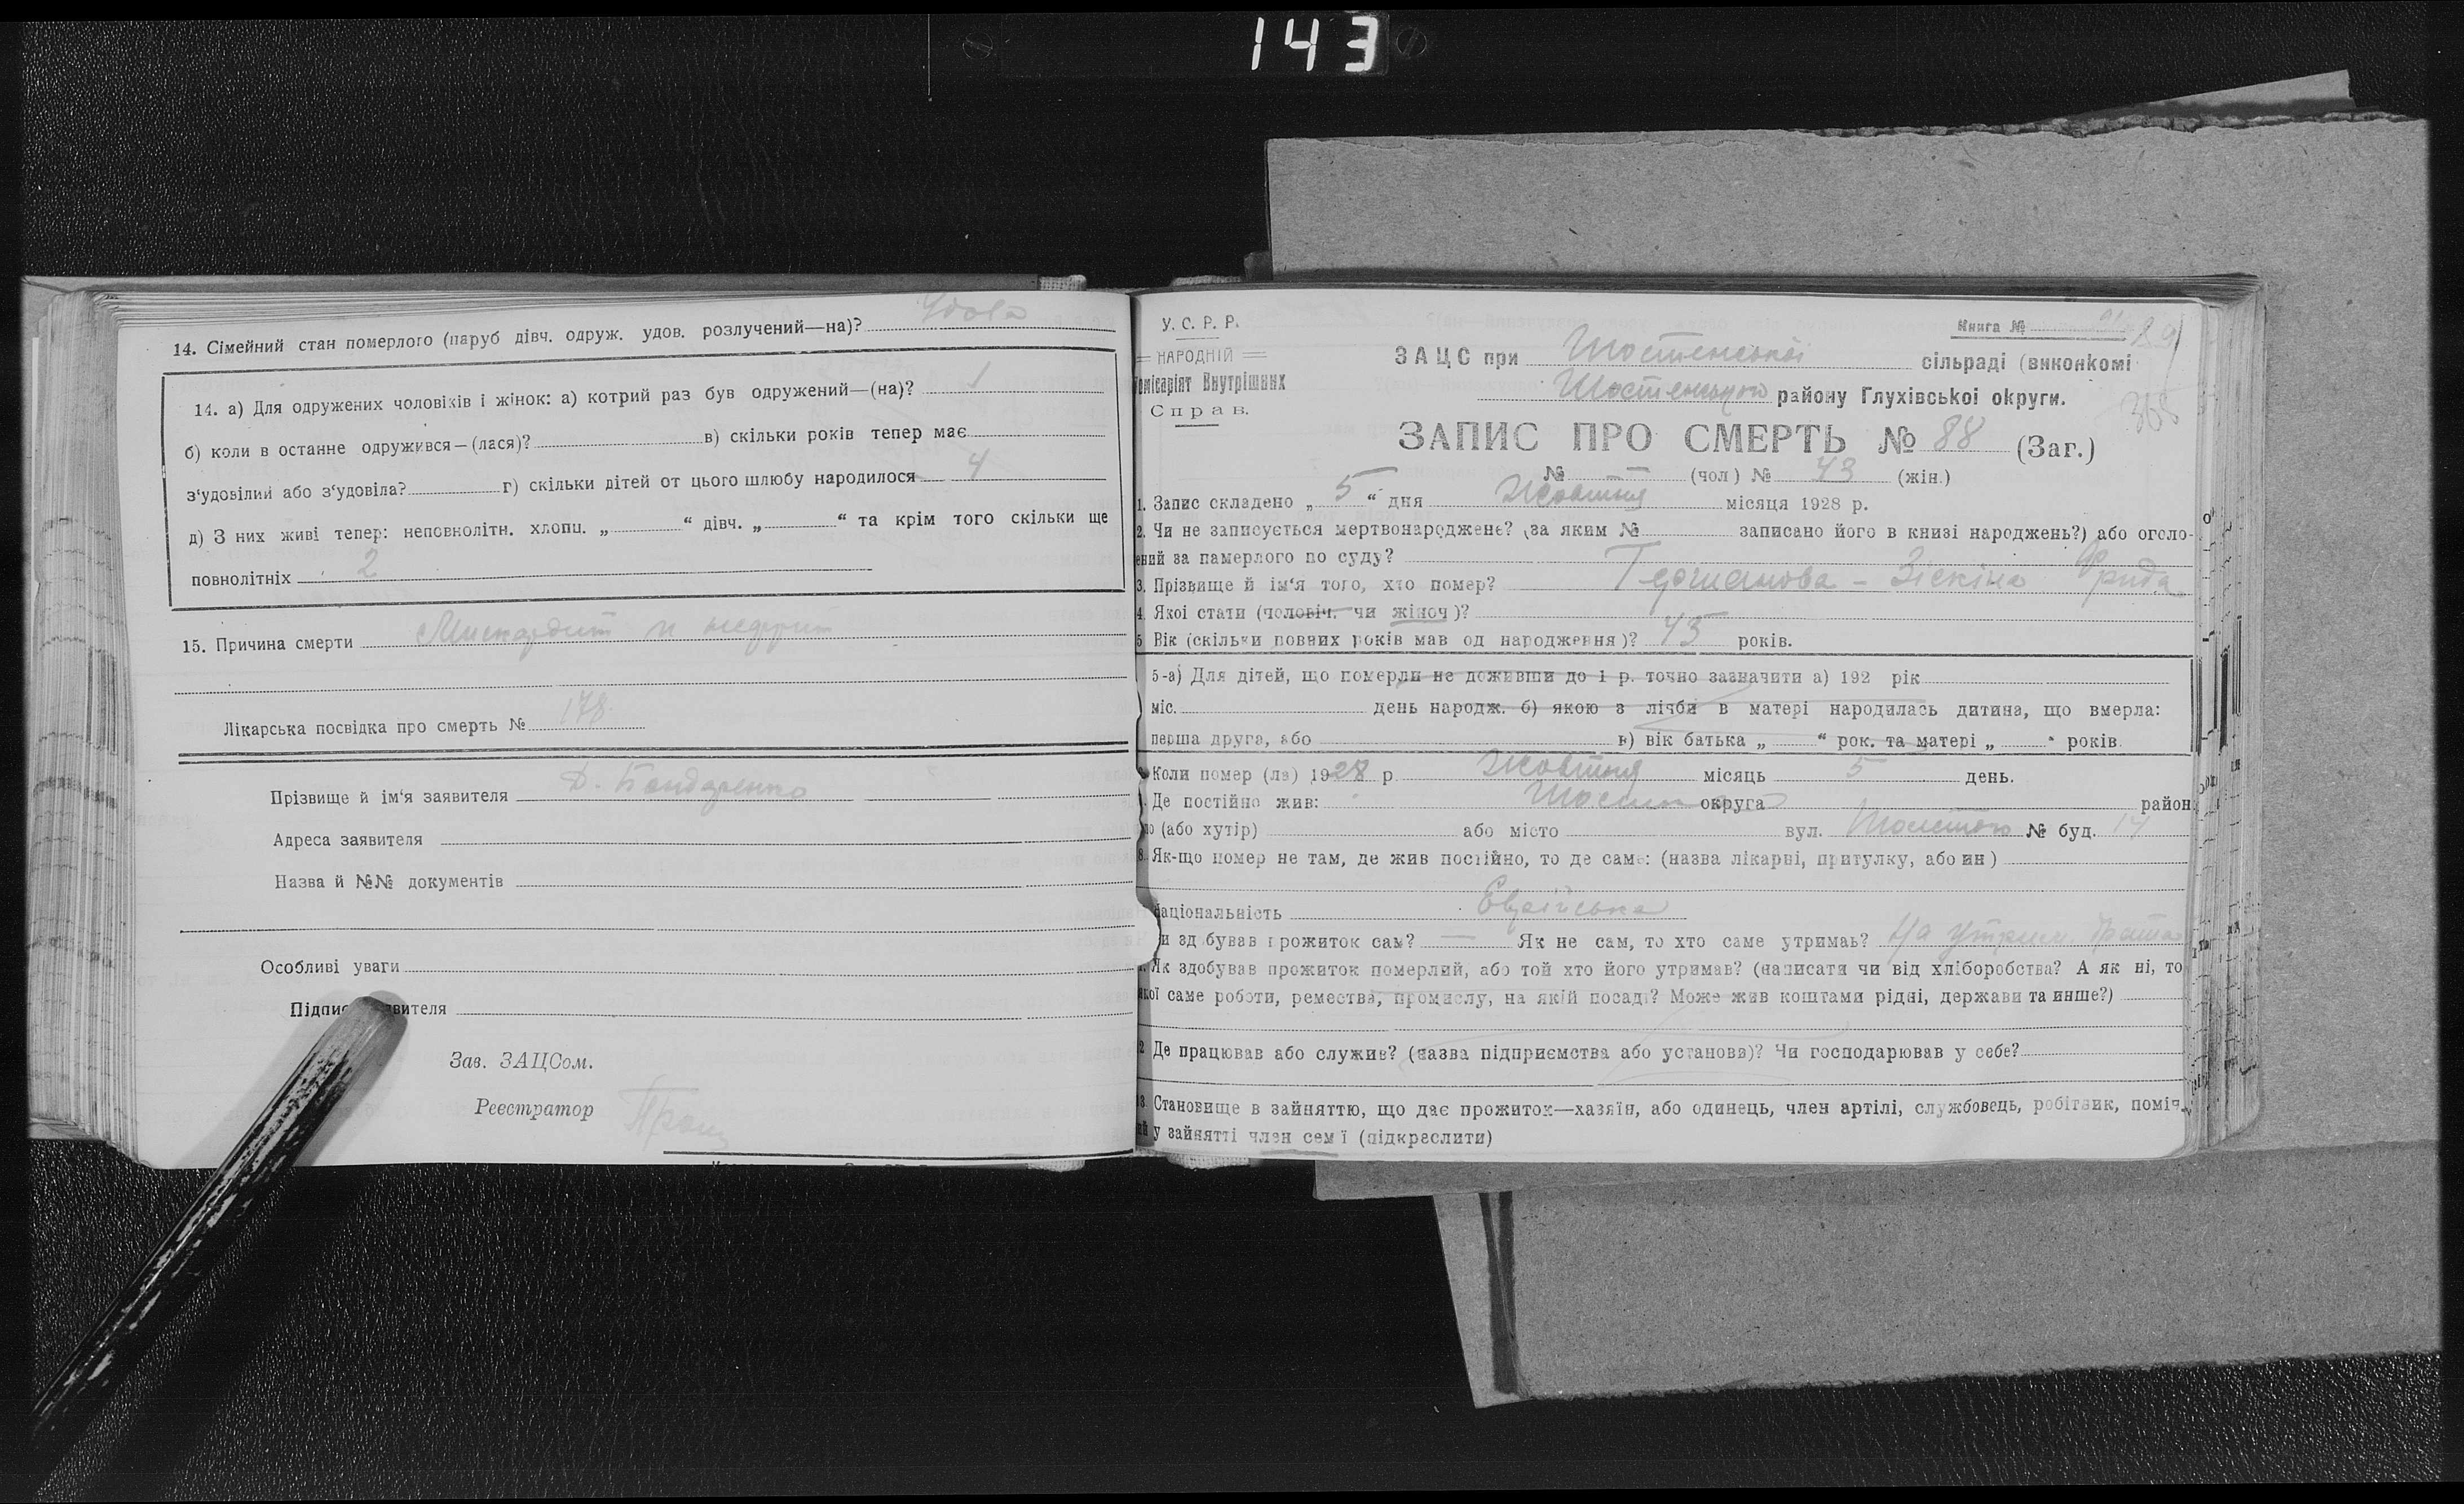 143
14. Сімейний стан померлого (паруб дівч. одруж. удов. розлучений—на)? Удова
14. а) Для одружених чоловіків і жінок: а) котрий раз був одружений—(на)? 1
б) коли в останне одружився—(лася)? в) скільки років тепер має
з'удовілий або з'удовіла? г) скільки дітей от цього шлюбу народилося 4
д) З них живі тепер: неповнолітн. хлопц. „ “ дівч. „ “ та крім того скільки ще
повнолітніх 2
15. Причина смерти Миокардит и нефрит
Лікарська посвідка про смерть № 178
Прізвище й ім'я заявителя Д. Бондаренко
Адреса заявителя
Назва й №№ документів
Особливі уваги
Підпис заявителя
Зав. ЗАЦСом.
Реєстратор
У. С. Р. Р.
НАРОДНІЙ
Комісаріят Внутрішних
Справ.
Книга №
ЗАЦС при Шостенській сільраді (виконкомі
Шостенського району Глухівської округи.
ЗАПИС ПРО СМЕРТЬ № 88 (Заг.)
№ — (чол) № 43 (жін.)
1. Запис складено „ 5 “ дня Жовтня місяця 1928 р.
2. Чи не записується мертвонароджене? (за яким № записано його в книзі народжень?) або оголо-
ений за памерлого по суду?
3. Прізвище й ім'я того, хто помер? Германова - Зіскіна Фрида
4. Якої стати (человіч. чи жіноч)?
5 Вік (скільки повних років мав од народження)? 45 років.
5-а) Для дітей, що померли не доживши до 1 р. точно зазначити а) 192 рік
міс. день народж. б) якою з лічби в матері народилась дитина, що вмерла:
перша друга, або в) вік батька „ “ рок. та матері „ “ років
Коли помер (ла) 1928 р. Жовтня місяць 5 день.
Де постійно жив: округа район
(або хутір) або місто вул. № буд. 14
8. Як-що помер не там, де жив постійно, то де саме: (назва лікарні, притулку, або ин)
Національність Еврейська
и здобував прожиток сам? — Як не сам, то хто саме утримав? На утрим. брата
Як здобував прожиток померлий, або той хто його утримав? (написати чи від хліборобства? А як ні, то
якої саме роботи, ремества, промислу, на якій посаді? Може жив коштами рідні, держави та инше?)
2 Де працював або служив? (назва підприємства або установи)? Чи господарював у себе?
3. Становище в зайняттю, що дає прожиток—хазяїн, або одинець, член артілі, службовець, робітник, поміч.
ий у зайнятті член семї (підкреслити)